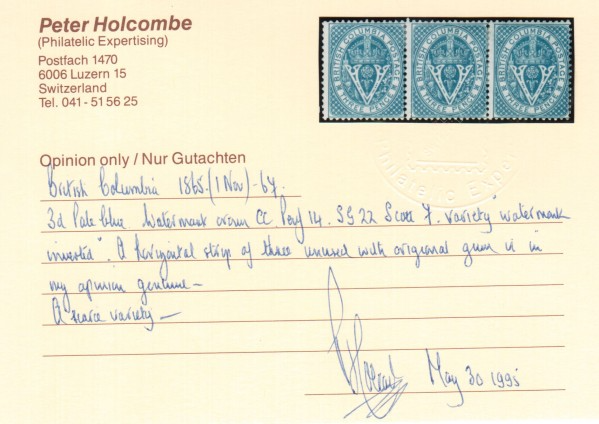 Peter Holcombe
(Philatelic Expertising)
Postfach 1470
6006 Luzern 15
Switzerland
Tel. 041-51 56 25
BRITISH COLUMBIA POSTAGE THREE PENCE
BRITISH COLUMBIA POSTAGE THREE PENCE
BRITISH COLUMBIA POSTAGE THREE PENCE
Opinion only / Nur Gutachten
British Columbia 1865.(1 Nov)-67.
3d Pale blue Watermark crown CC Perf 14. SG 22 Scott 7. variety "watermark
inverted". A horizontal strip of three unused with origional gum is in
my opinion genuine—
A scarce variety—
May 30 1995